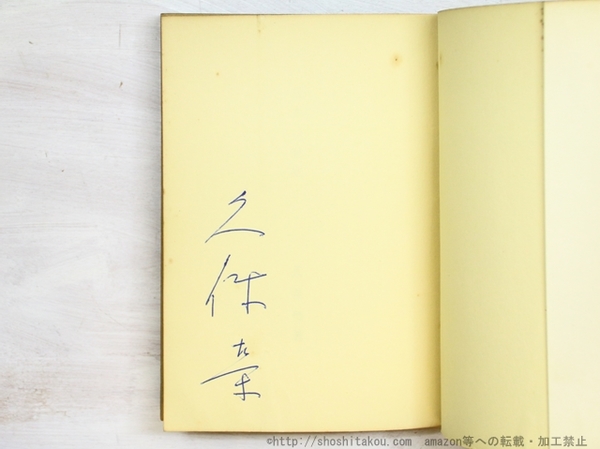 久保栄
©http://shoshitakou.com amazon等への転載・加工禁止